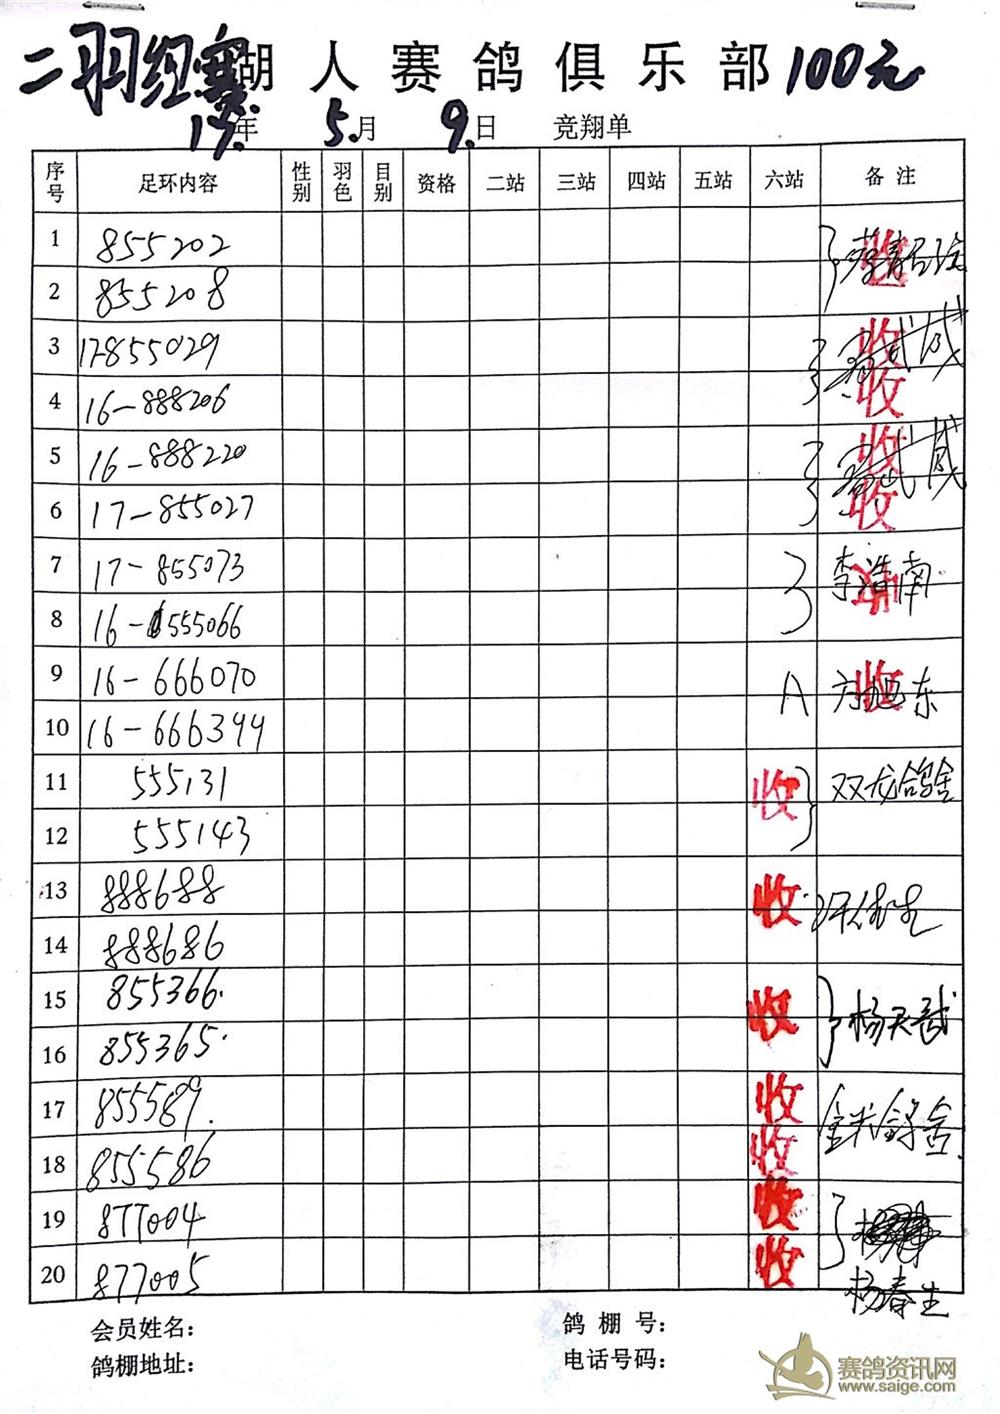 二羽组赛 湖人赛鸽俱乐部 100元
17年 5.月 9.日 竞翔单
序号 足环内容 性别 羽色 目别 资格 二站 三站 四站 五站 六站 备注
1 855202 收
2 855208
3 17-855029 收
4 16-888206 收
5 16-888220 收
6 17-855027 收
7 17-855073 李浩南
8 16-555066
9 16-666070 A 收 东
10 16-666399
11 555131 收 双龙鸽舍
12 555143
13 888688 收
14 888686
15 855366. 收 杨天武
16 855365.
17 855589. 收
18 855586 收
19 877004 收
20 877005 收 杨春生
会员姓名： 鸽棚号：
鸽棚地址： 电话号码：
赛鸽资讯网
www.saige.com